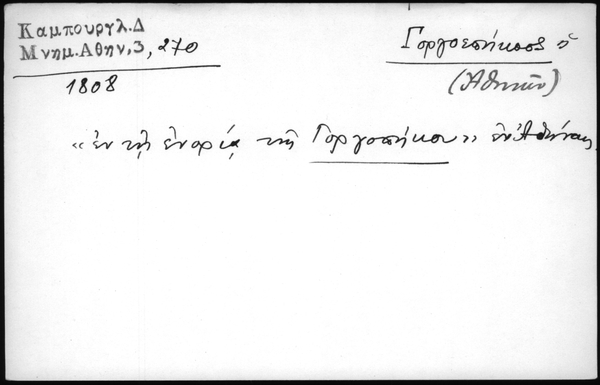 Καμπουργλ.Δ
Μνημ.Αθην,3, 270
1808
Γοργοεπήκοος ὁ
(Ἀθηνῶν)
«ἐν τῇ ἐνορίᾳ τῆς Γοργοπήκου» ἐν Ἀθήναις